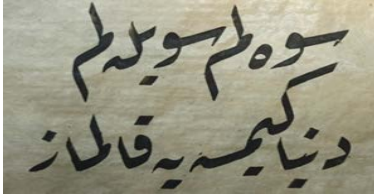 سوه لم سویله لم
دنیا کیمسه یه قالماز